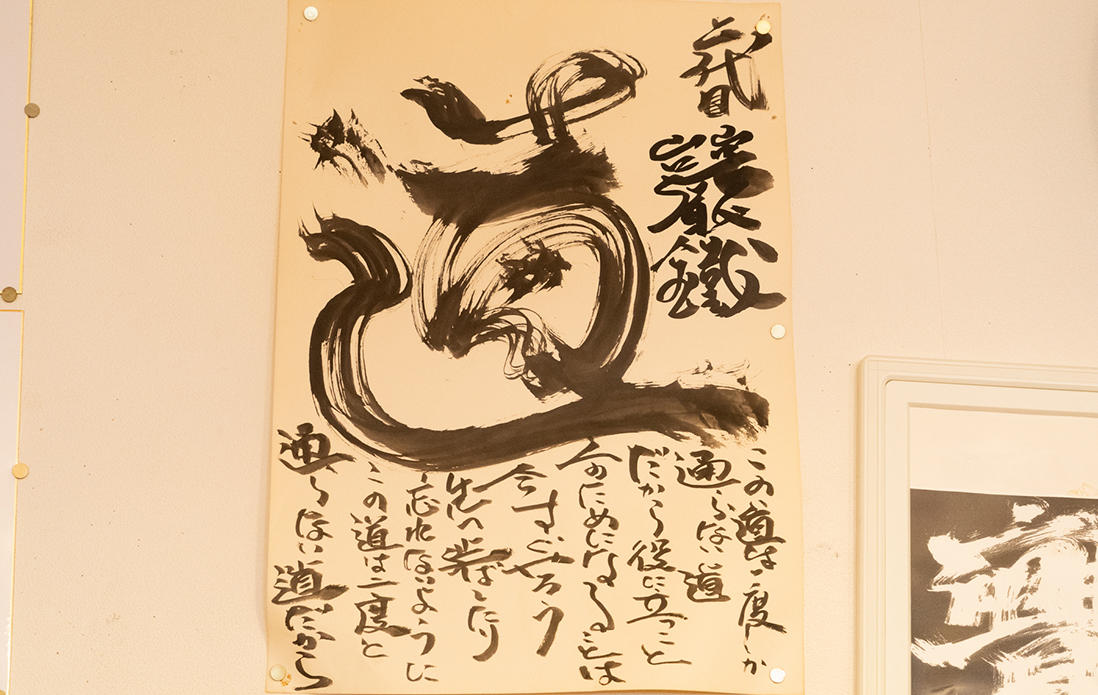 二代目
巖鐵
道
この道は一度しか
通らない道
だから役に立つこと
人のためになることは
今すぐやろう
先へ延ばしたり
忘れないように
この道は二度と
通らない道だから